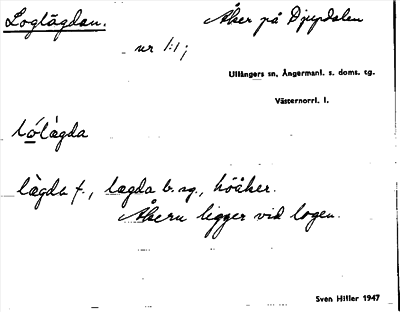 Logtägdan. Åker på Djupdalen
nr 1:1;
Ullångers sn, Ångermanl. s. doms. tg.
Västernorrl. l.
lägda f., lægda b. sg., höåker.
Åkern ligger vid logen.
Sven Hitler 1947